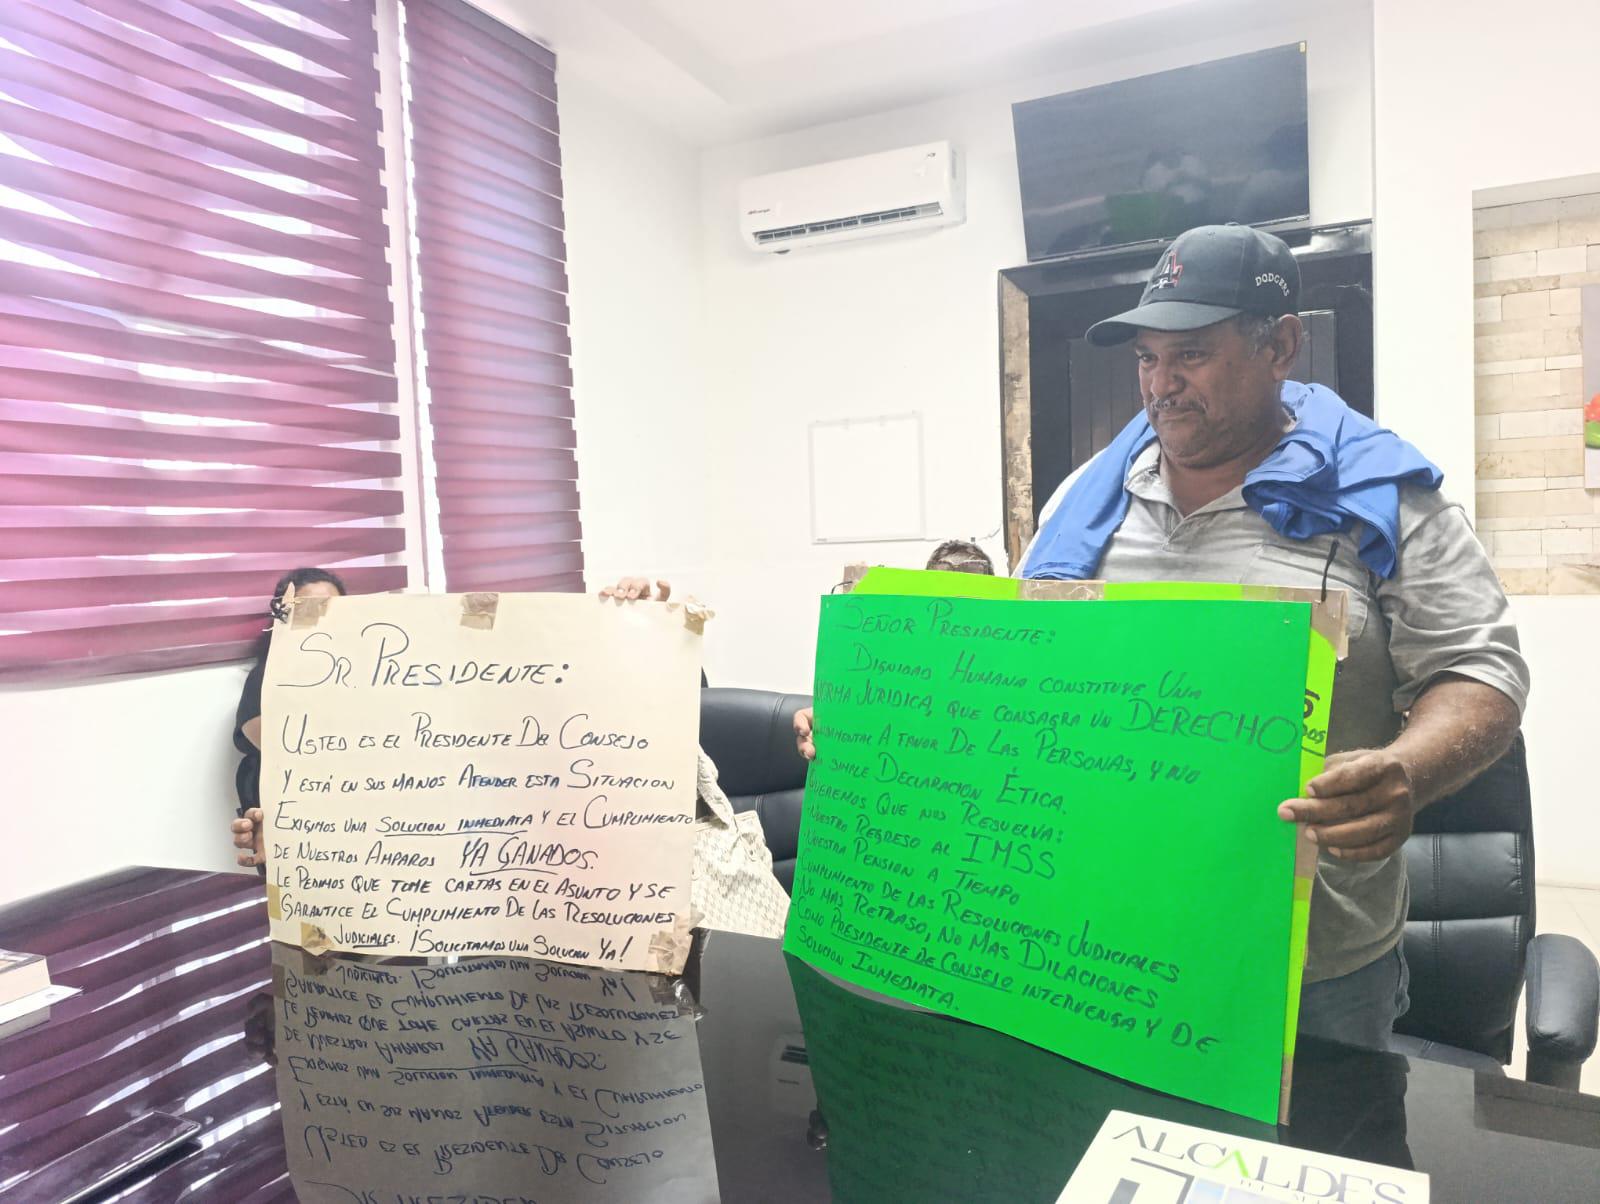 SR. PRESIDENTE:
USTED ES EL PRESIDENTE DEL CONSEJO
Y ESTÁ EN SUS MANOS ATENDER ESTA SITUACION
EXIGIMOS UNA SOLUCION INMEDIATA Y EL CUMPLIMIENTO
DE NUESTROS AMPAROS YA GANADOS.
LE PEDIMOS QUE TOME CARTAS EN EL ASUNTO Y SE
GARANTICE EL CUMPLIMIENTO DE LAS RESOLUCIONES
JUDICIALES. ¡SOLICITAMOS UNA SOLUCION YA!
SEÑOR PRESIDENTE:
DIGNIDAD HUMANA CONSTITUYE UNA
NORMA JURIDICA, QUE CONSAGRA UN DERECHO
A FAVOR DE LAS PERSONAS, Y NO
SIMPLE DECLARACION ÉTICA.
QUEREMOS QUE NOS RESUELVA:
-NUESTRO REGRESO AL IMSS
-NUESTRA PENSION A TIEMPO
CUMPLIMIENTO DE LAS RESOLUCIONES JUDICIALES
-NO MAS RETRASO, NO MAS DILACIONES
-COMO PRESIDENTE DE CONSEJO INTERVENGA Y DE
SOLUCION INMEDIATA.
DODGERS
ALCALDES